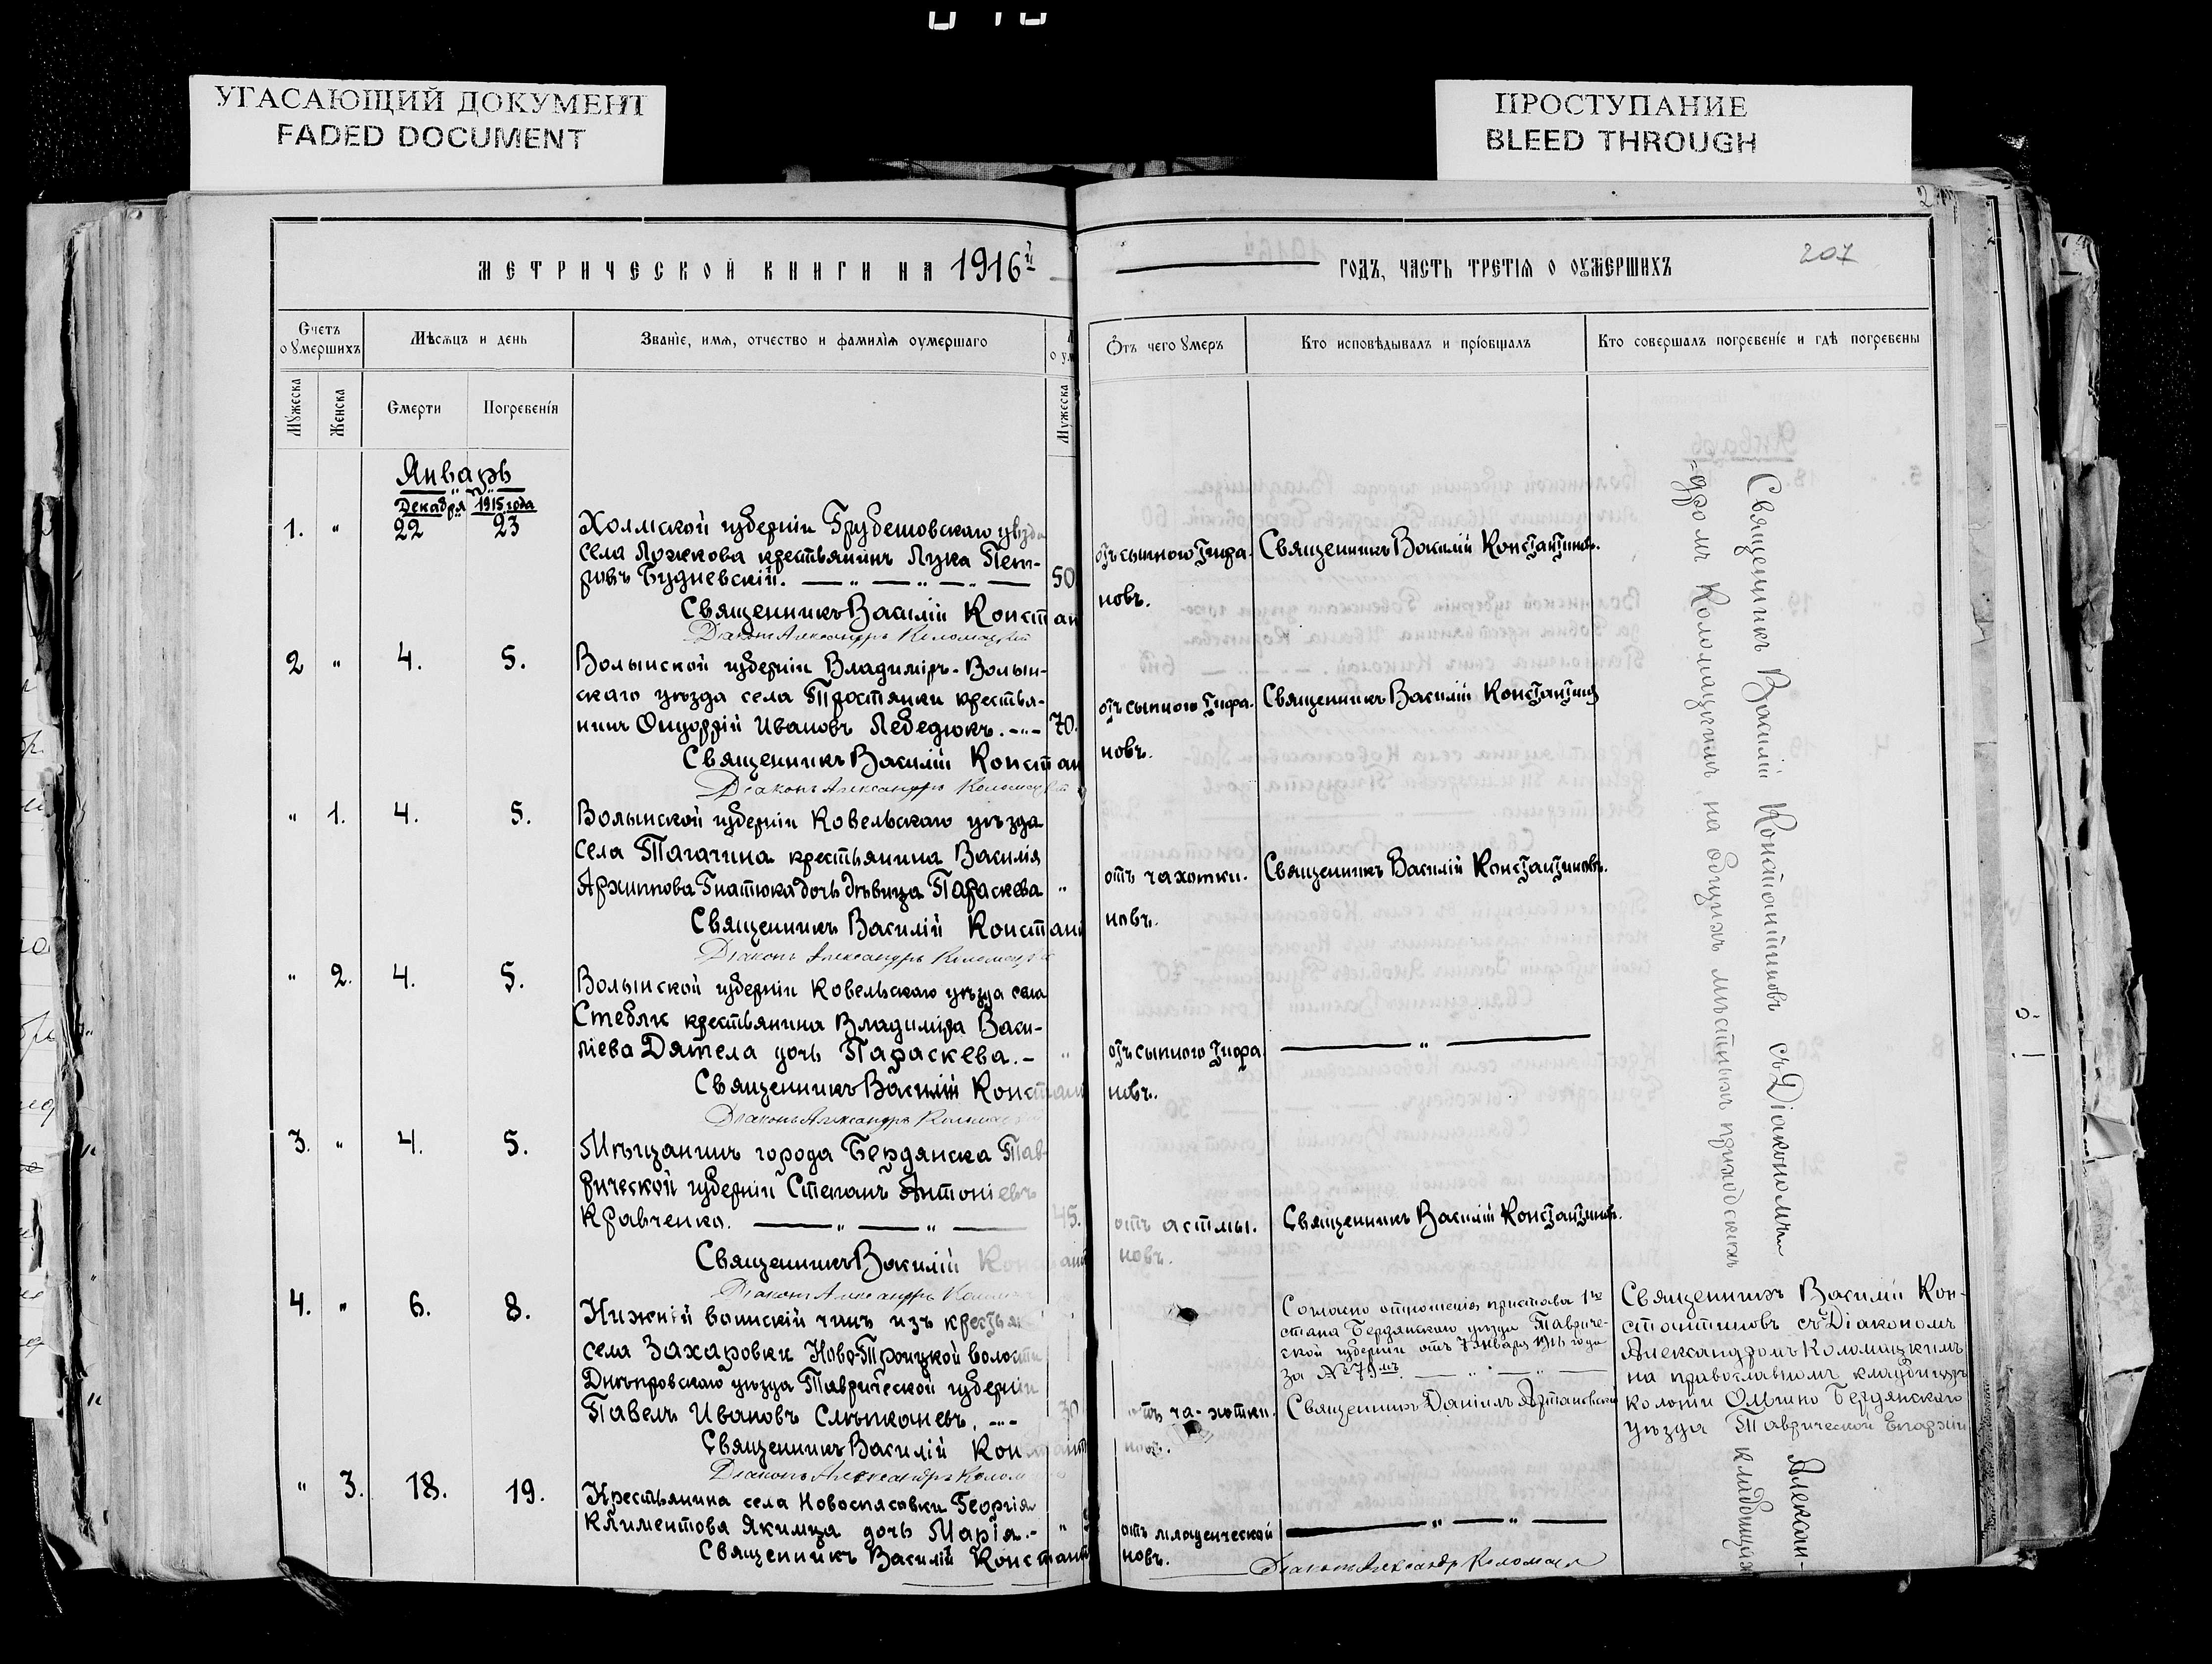 УГАСАЮЩИЙ ДОКУМЕНТ
FADED DOCUMENT
ПРОСТУПАНИЕ
BLEED THROUGH
207
МЕТРИЧЕСКОЙ КНИГИ НА 1916й
ГОДЪ, ЧАСТЬ ТРЕТІѦ О ОУМЕРШИХЪ
Счетъ оумершихъ
Мѣсѧцъ и день
Званіе, имѧ, отчество и фамиліѧ оумершаго
Отъ чего умеръ
Кто исповѣдывалъ и пріобщалъ
Кто совершалъ погребеніе и гдѣ погребены
Мужеска
Женска
Смерти
Погребенія
Мужеска
Январь
Декабря 1915 года
1. " 22 23
Холмской губерніи Грубешовскаго уѣзда
села Лушкова крестьянинъ Лука Пет-
ровъ Будневскій. 50
Священникъ Василій Констан
Діаконъ Александръ Коломацкій
отъ сыпного тифа.
новъ.
Священникъ Василій Константиновъ.
2 " 4. 5.
Волынской губерніи Владиміръ-Волын-
скаго уѣзда села Тростянки крестья-
нинъ Онуфрій Ивановъ Лебедюкъ. 70.
Священникъ Василій Констан
Діаконъ Александръ Коломацкій
отъ сыпного тифа.
новъ.
Священникъ Василій Константинов
" 1. 4. 5.
Волынской губерніи Ковельскаго уѣзда
села Тагачина крестьянина Василія
Архиппова Гнатюка дочь дѣвица Параскева "
Священникъ Василій Констант
Діаконъ Александръ Коломацкі
отъ чахотки.
новъ.
Священникъ Василій Константиновъ.
" 2. 4. 5.
Волынской губерніи Ковельскаго уѣзда села
Стеблк крестьянина Владиміра Васи-
ліева Дятела дочь Параскева.- "
Священникъ Василій Констант
Діаконъ Александръ Коломацкій
отъ сыпного тифа
новъ.
"
3. " 4. 5.
Мѣщанинъ города Бердянска Тав-
рической губерніи Степанъ Антоніевъ
Кравченко. 45.
Священникъ Василій Констант
Діаконъ Александръ Колом
отъ астмы.
новъ.
Священникъ Василій Константиновъ.
4. " 6. 8.
Нижній воинскій чинъ изъ крестьян
села Захаровки Ново-Троицкой волости
Днѣпровскаго уѣзда Таврической губерніи
Павелъ Ивановъ Слѣпканевъ. 30
Священникъ Василій Констант
Діаконъ Александръ Колом
отъ ча-хотки.
новъ.
Согласно отношенія пристава 1го
стана Бердянскаго уѣзда Тавриче-
ской губерніи отъ 7 января 1916 года
за № 79мъ.
Священникъ Даніилъ
Священникъ Василій Кон-
стантиновъ съ Діакономъ
Александромъ Коломацкимъ
на православномъ кладбищѣ
колоніи Ольгино Бердянскаго
уѣзда Таврической Епархіи
" 3. 18. 19.
Крестьянина села Новоспасовки Георгія
Климентова Якимца дочь Марія.- "
Священникъ Василій Констант
отъ младенческой
новъ.
"
Діаконъ Александръ Коломацк
Священникъ Василій Константиновъ съ Діакономъ Алексан-
=дромъ Коломацкимъ на общихъ мѣстныхъ приходскихъ кладбищахъ